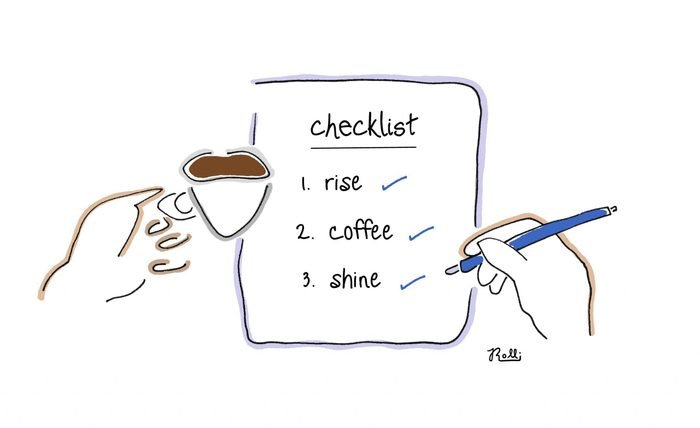 checklist
1. rise
2. coffee
3. shine
JRolli